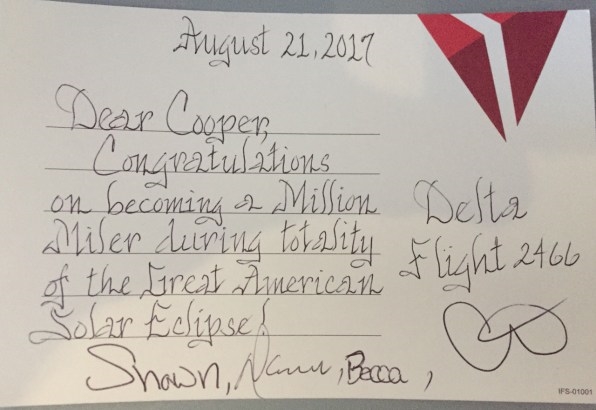 August 21, 2017
Dear Cooper,
Congratulations
on becoming a Million
Miler during totality
of the Great American
Solar Eclipse!
Delta
Flight 2466
Shawn, , Becca,
IFS-01001